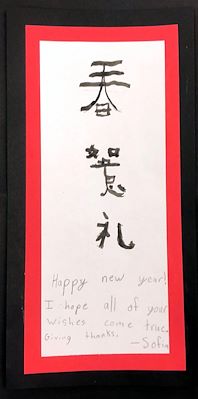 春
礼
Happy new year!
I hope all of your
wishes come true.
Giving thanks.
—Sofia